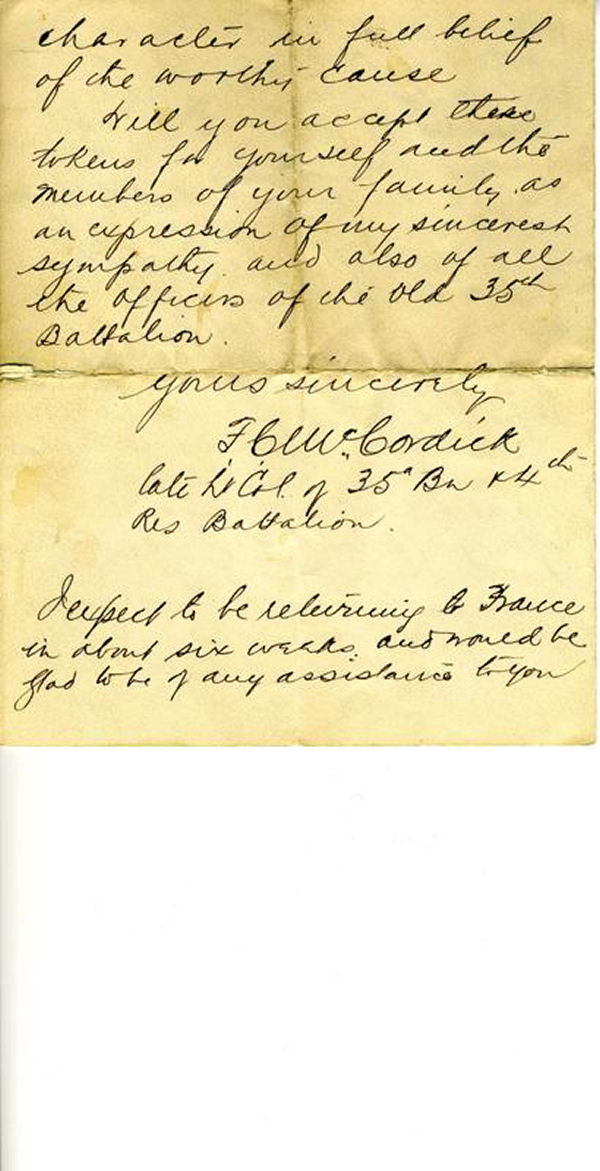 character in full belief
of the worthy cause
Will you accept these
tokens for yourself and the
members of your family as
an expression of my sincerest
sympathy and also of all
the officers of the Old 35th
Battalion.
yours sincerely
F C McCordick
late Lt Col. of 35th Bn & 4th
Res Battalion.
I expect to be returning to France
in about six weeks. and would be
glad to be of any assistance to you